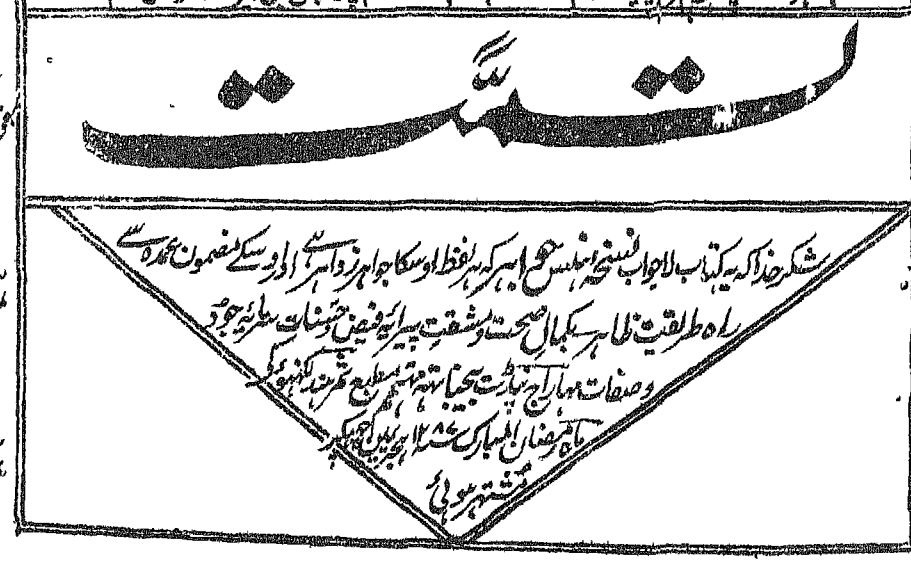 تمّت
شکر خدا کہ یہ کتاب لاجواب نسخہ انیس ہر لفظ اوسکا جواہر زواہر ہے اور اوسکے مضمون عمدہ سے
راہ طریقت ظاہر ہے بکمال صحت و مشقت پیرایۂ فیض و حسنات سرمایۂ جود
و صفات مہاراج پنڈت بیجناتہہ مہتمم مطبع ثمر ہند لکہنؤ کی
ماہ رمضان المبارک ۱۲۸۶ ہجری میں
مشتہر ہوئی